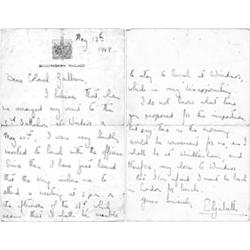 BUCKINGHAM PALACE
May 13th
Dear Colonel
I believe that when
we arranged my visit to the
at Windsor on
May 21st, I was very kindly
invited to lunch with the officers.
Since then, I have just heard
that the King wishes me to
attend a meeting at 3 p.m. in
the afternoon of the 21st which
means that I shall be unable
to stay to lunch at Windsor,
which is very disappointing.
I do not know what time
you proposed for the inspection
but any time in the morning
would be convenient for me, and I
shall be at
very close to Windsor
but I'm afraid I must be back in
London for lunch.
Yours sincerely
Elizabeth